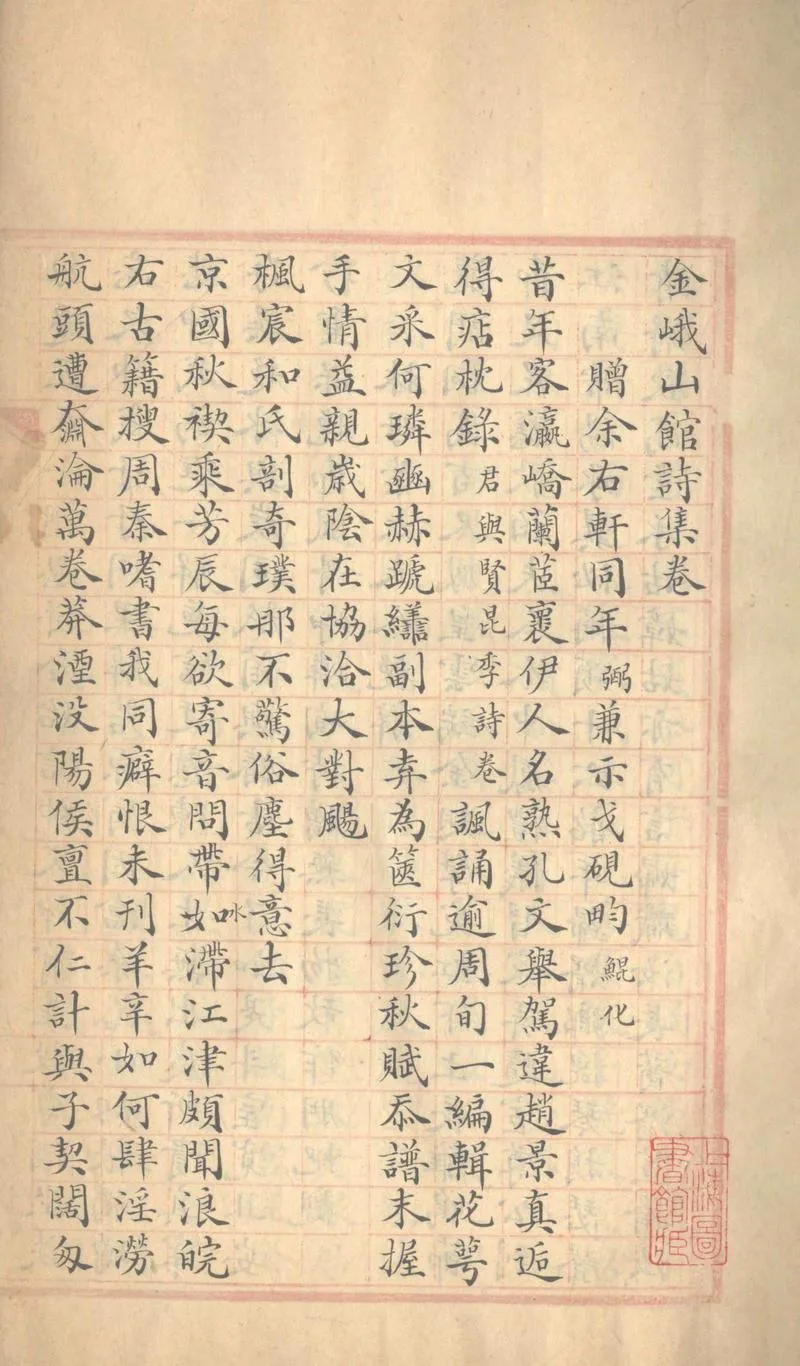 金峨山館詩集卷
贈余右軒同年弼兼示戈硯畇鯤化
昔年客瀛嶠蘭茝襄伊人名熟孔文舉駕違趙景真逅
得痁枕錄君與賢昆季詩卷諷誦逾周旬一編輯花萼
文采何璘豳赫蹏繕副本弆為篋衍珍秋賦忝譜末握
手情益親歲陰在協洽大對颺
楓宸和氏剖奇璞那不驚俗塵得意去
京國秋禊乘芳辰每欲寄音問帶如水滯江津頗聞浪皖
右古籍搜周秦嗜書我同癖恨未刊羊辛如何肆淫澇
航頭遭奫淪萬卷莽湮没陽侯亶不仁計與子契闊匆
上海圖書館藏